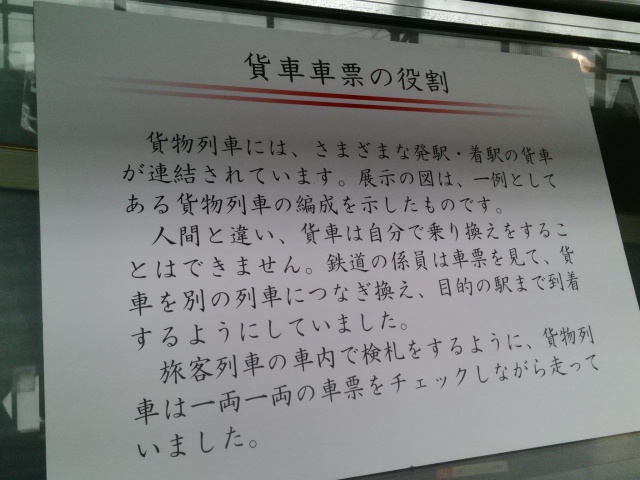 貨車車票の役割
貨物列車には、さまざまな発駅・着駅の貨車
が連結されています。展示の図は、一例として
ある貨物列車の編成を示したものです。
人間と違い、貨車は自分で乗り換えをするこ
とはできません。鉄道の係員は車票を見て、貨
車を別の列車につなぎ換え、目的の駅まで到着
するようにしていました。
旅客列車の車内で検札をするように、貨物列
車は一両一両の車票をチェックしながら走って
いました。